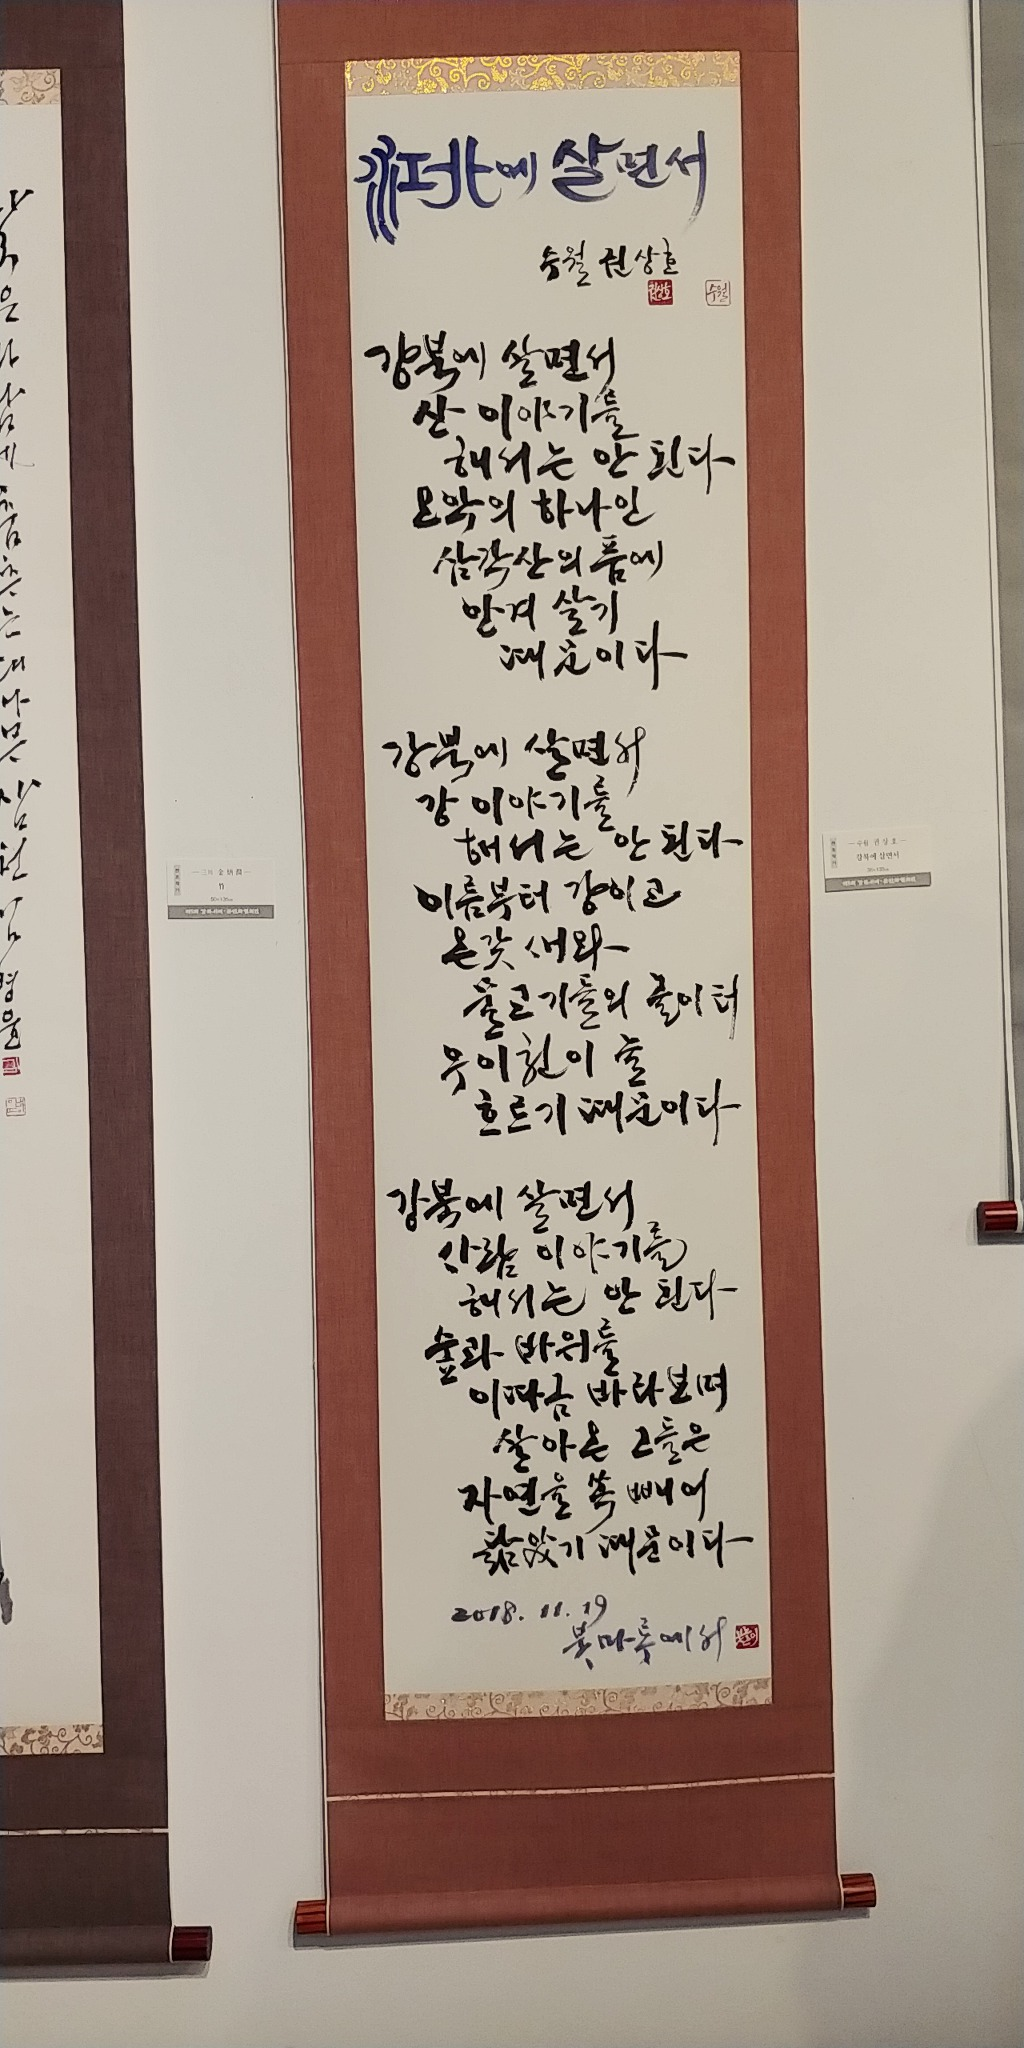 江北에 살면서
수월 권상호
수월
강북에 살면서
산 이야기를
해서는 안 된다
오악의 하나인
삼각산의 품에
안겨 살기
때문이다
강북에 살면서
강 이야기를
해서는 안 된다
이름부터 강이고
온갖 새와
물고기들의 놀이터
우이천이 늘
흐르기 때문이다
강북에 살면서
사람 이야기를
해서는 안 된다
숲과 바위를
이따금 바라보며
살아온 그들은
자연을 쏙 빼어
닮았기 때문이다
2018. 11. 19
붓마루에서
수월 권상호
강북에 살면서
竹